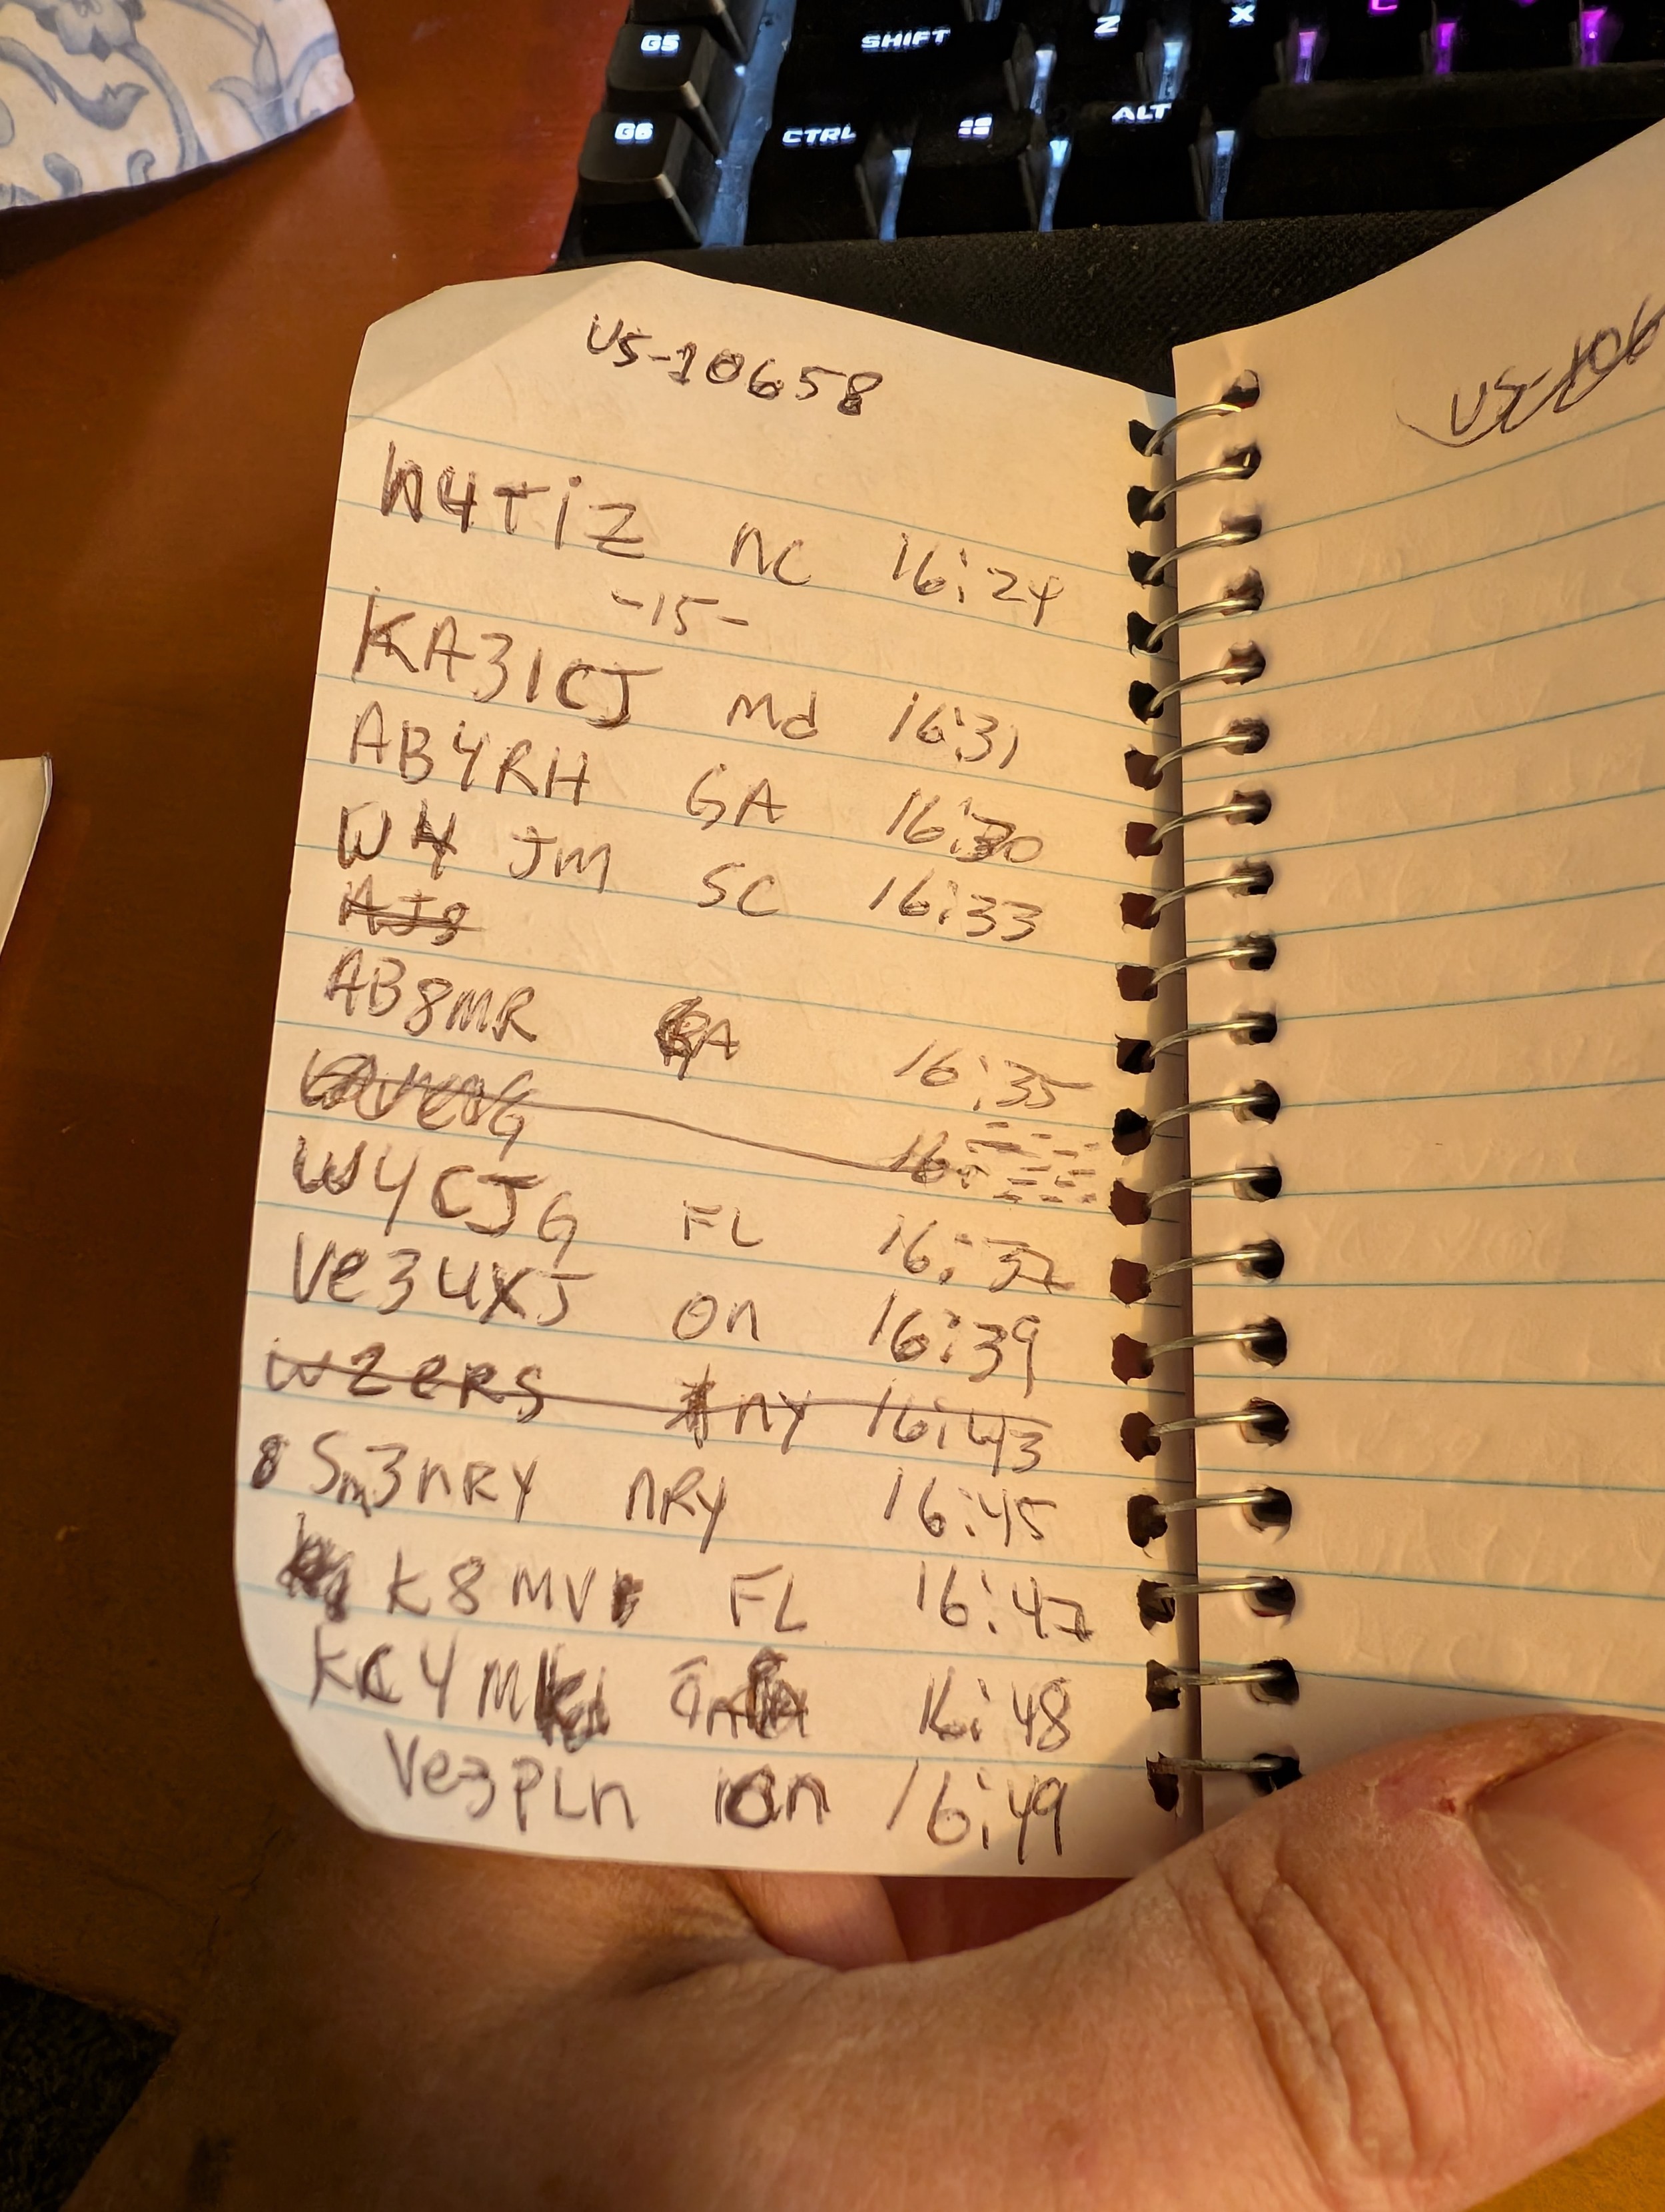 G5 SHIFT Z X C
G6 CTRL ALT
US-10658
US-106
W4TIZ NC 16:24
-15-
KA3ICJ Md 16:31
AB4RH GA 16:30
W4 JM SC 16:33
AB8MR GA 16:35
16:
W4CJG FL 16:37
Ve3UXJ On 16:39
W2eRS NY 16:43
8 Sm3nRY nRy 16:45
K8MV FL 16:47
KC4M 16:48
Ve3PLn On 16:49